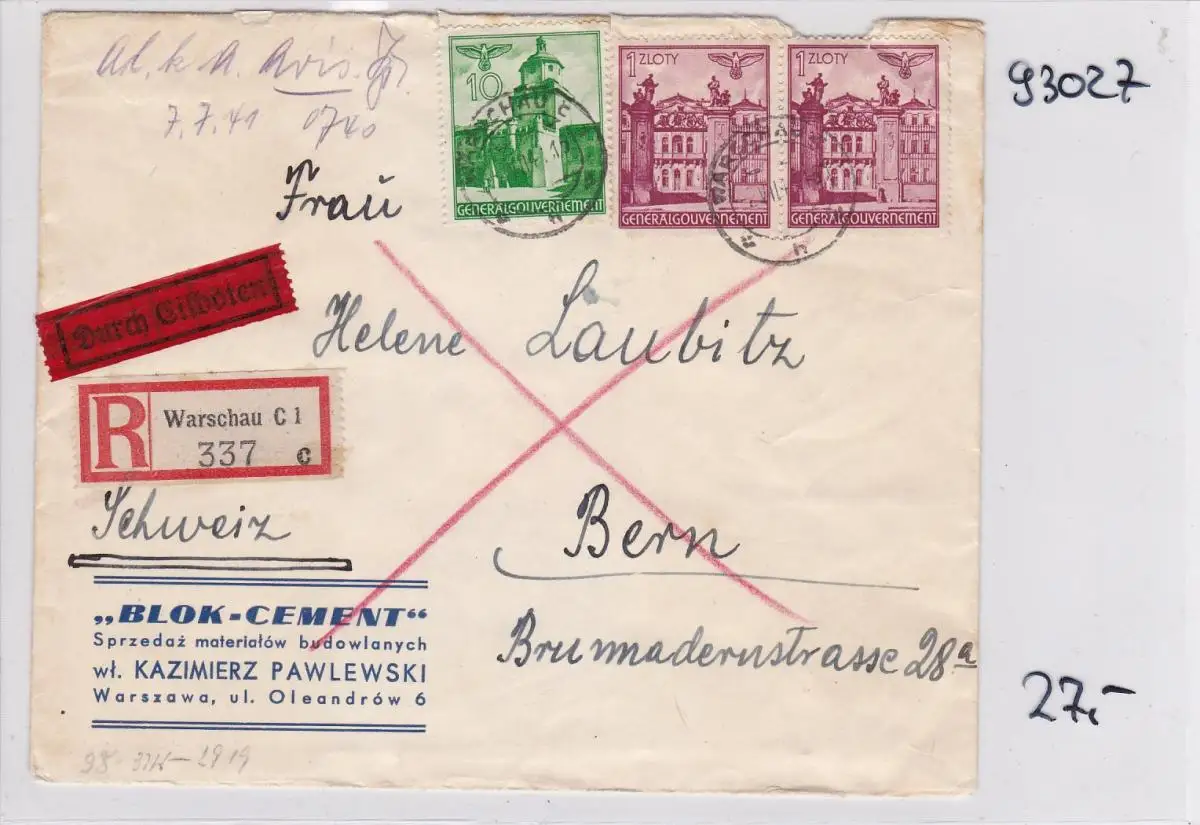 Avis.
7.7.41 0740
10
GENERALGOUVERNEMENT
1 ZLOTY
GENERALGOUVERNEMENT
1 ZLOTY
GENERALGOUVERNEMENT
WARSCHAU C
93027
Frau
Durch Eilboten
Helene Laubitz
R
Warschau C 1
337 c
Schweiz
Bern
Brunnadernstrasse 28a
„BLOK-CEMENT“
Sprzedaż materiałów budowlanych
wł. KAZIMIERZ PAWLEWSKI
Warszawa, ul. Oleandrów 6
27,-